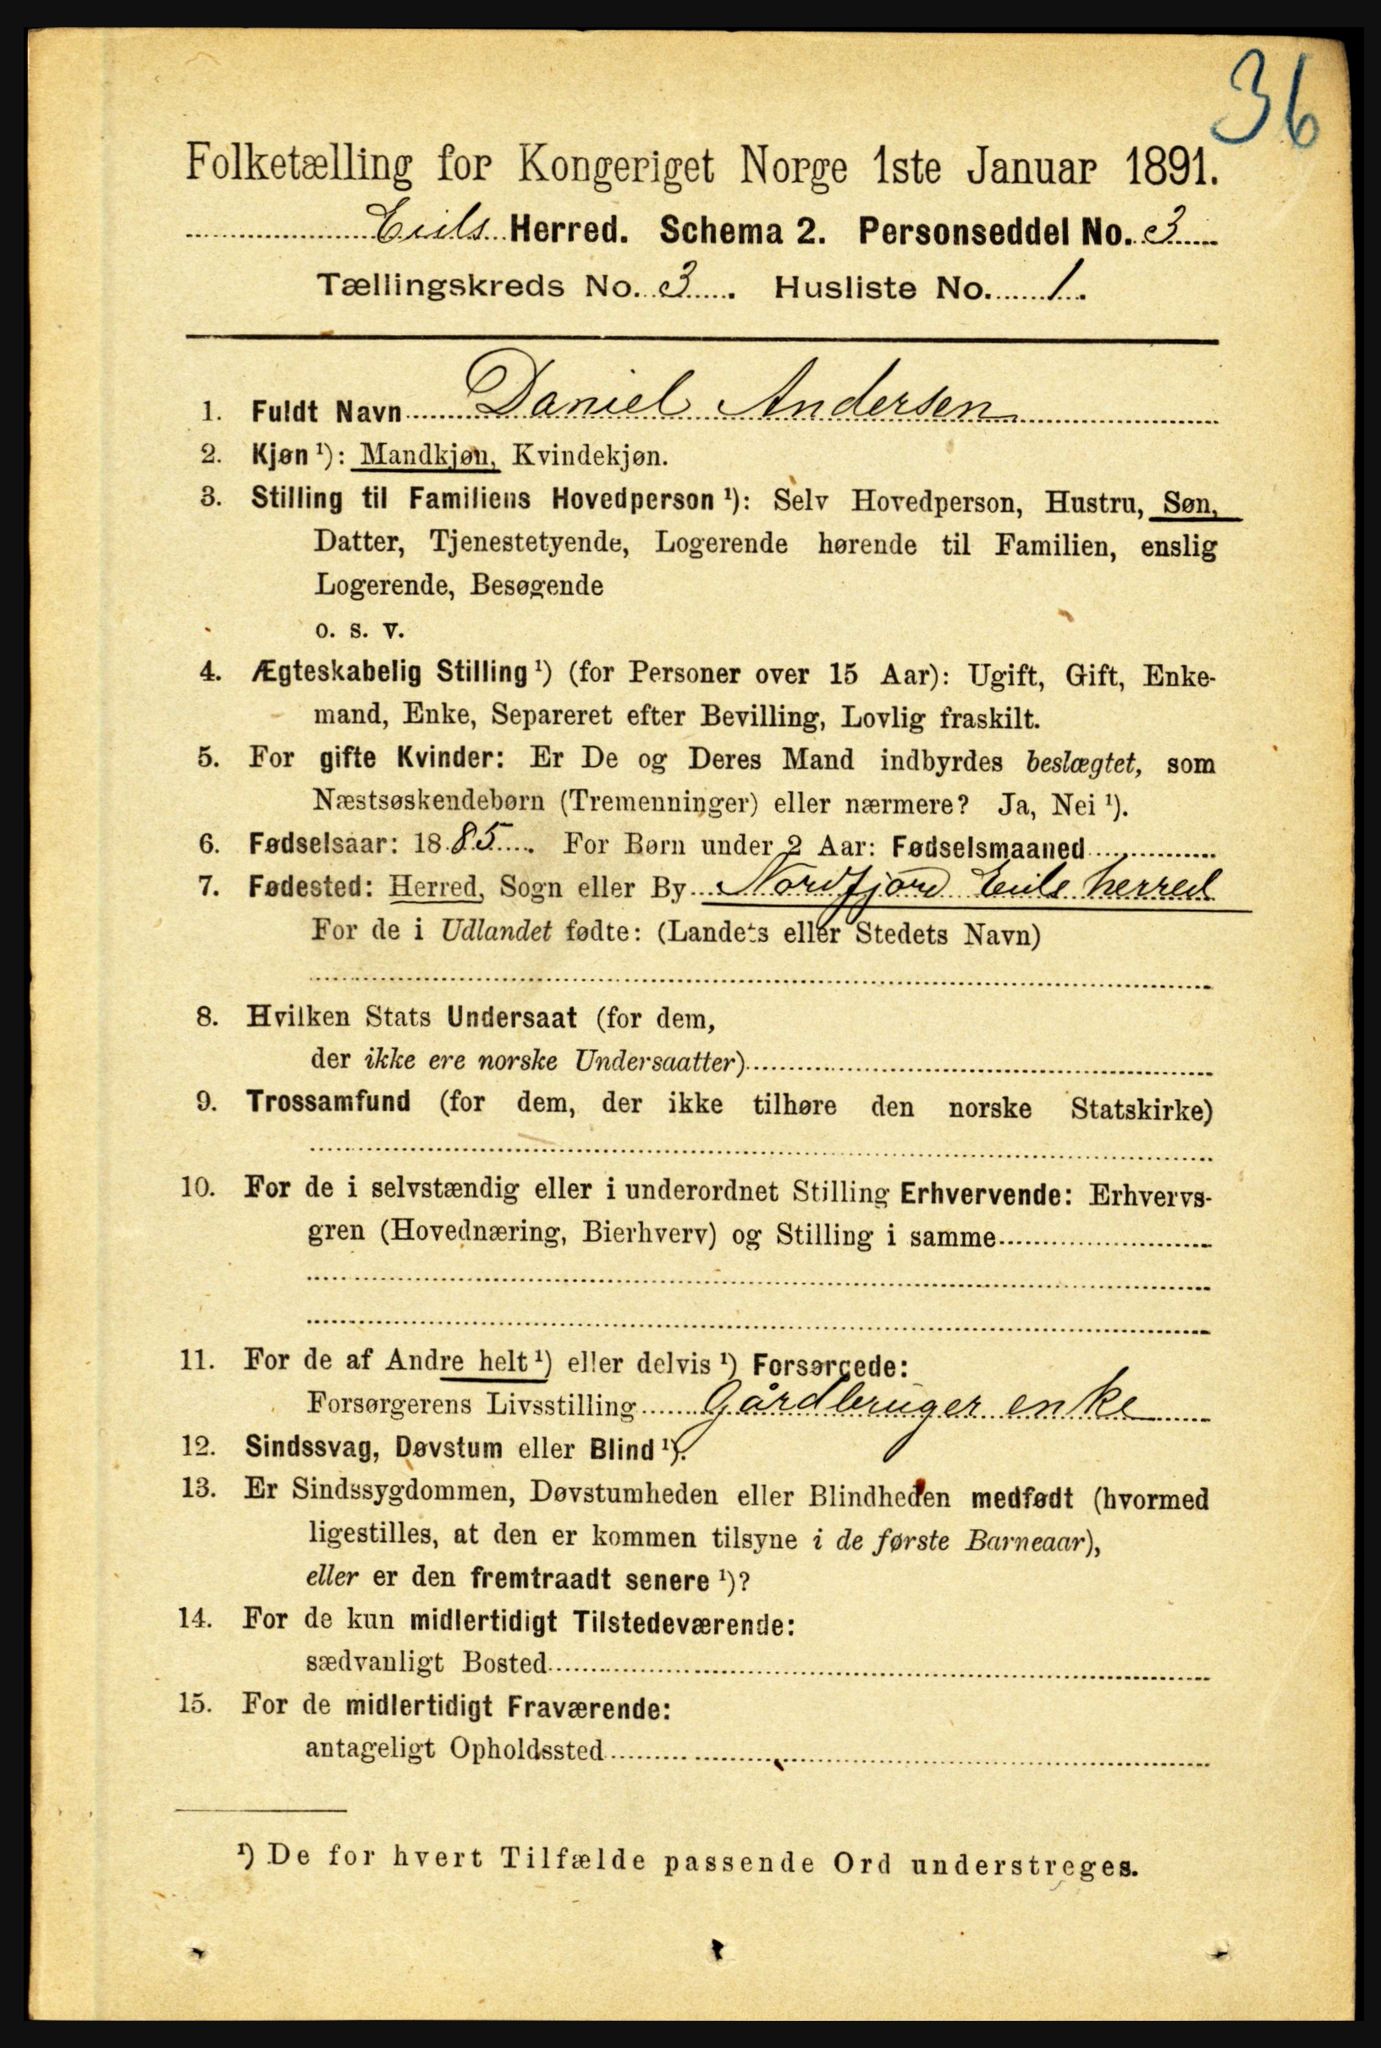 36
Folketælling for Kongeriget Norge 1ste Januar 1891.
Eids Herred. Schema 2. Personseddel No. 3
Tællingskreds No. 3. Husliste No. 1.
1. Fuldt Navn Daniel Andersen
2. Kjøn ¹): Mandkjøn, Kvindekjøn.
3. Stilling til Familiens Hovedperson ¹): Selv Hovedperson, Hustru, Søn,
Datter, Tjenestetyende, Logerende hørende til Familien, enslig
Logerende, Besøgende
o. s. v.
4. Ægteskabelig Stilling ¹) (for Personer over 15 Aar): Ugift, Gift, Enke-
mand, Enke, Separeret efter Bevilling, Lovlig fraskilt.
5. For gifte Kvinder: Er De og Deres Mand indbyrdes beslægtet, som
Næstsøskendebørn (Tremenninger) eller nærmere? Ja, Nei ¹).
6. Fødselsaar: 1885. For Børn under 2 Aar: Fødselsmaaned
7. Fødested: Herred, Sogn eller By Nordfjord Eids herred
For de i Udlandet fødte: (Landets eller Stedets Navn)
8. Hvilken Stats Undersaat (for dem,
der ikke ere norske Undersaatter)
9. Trossamfund (for dem, der ikke tilhøre den norske Statskirke)
10. For de i selvstændig eller i underordnet Stilling Erhvervende: Erhvervs-
gren (Hovednæring, Bierhverv) og Stilling i samme
11. For de af Andre helt ¹) eller delvis ¹) Forsørgede:
Forsørgerens Livsstilling Gårdbruger enke
12. Sindssvag, Døvstum eller Blind ¹).
13. Er Sindssygdommen, Døvstumheden eller Blindheden medfødt (hvormed
ligestilles, at den er kommen tilsyne i de første Barneaar),
eller er den fremtraadt senere ¹)?
14. For de kun midlertidigt Tilstedeværende:
sædvanligt Bosted
15. For de midlertidigt Fraværende:
antageligt Opholdssted
¹) De for hvert Tilfælde passende Ord understreges.